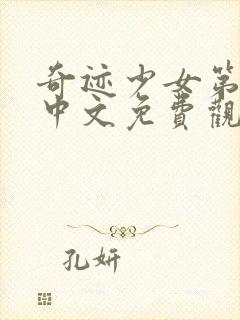 奇迹少女第
中文免費觀
孔妍